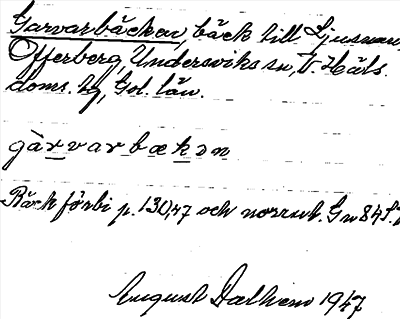 Garvarbäcken, bäck till Ljusnan,
Offerberg, Underviks sn, V. Häls
doms. hg, Gvl. län.
gàrvarbækən
Bäck förbi p. 130,47 och norrut. Gn 84
August Dalhem 1947